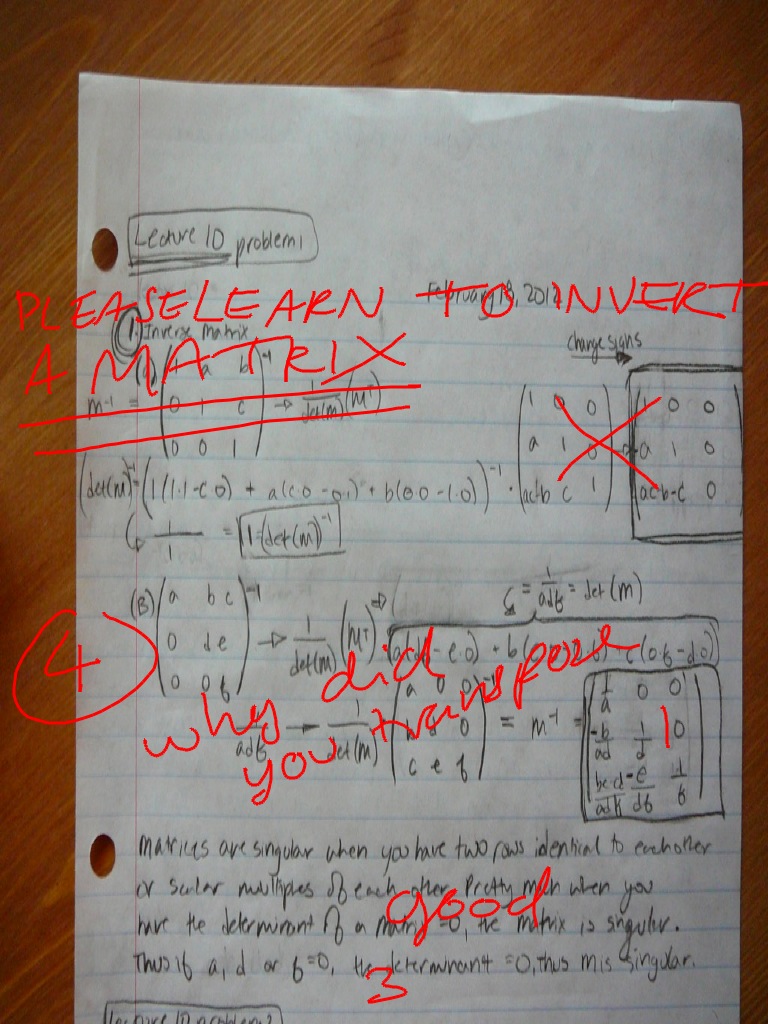 Lecture 10 problem 1
February 18, 2012
PLEASE LEARN TO INVERT
A MATRIX
1. Inverse Matrix
change signs
m⁻¹ = ( 1 a b ; 0 1 c ; 0 0 1 )⁻¹ → 1/det(m) (Mᵀ)
( 1 0 0 ; a 1 0 ; ac-b c 1 ) → ( 1 0 0 ; a 1 0 ; ac-b -c 0 )
(det(m))⁻¹ = (1(1·1-c·0) + a(c·0-0·1) + b(0·0-1·0))⁻¹ ·
1/1 = 1 = (det(m))⁻¹
(B) ( a b c ; 0 d e ; 0 0 f )⁻¹ → 1/det(m) (Mᵀ) ⇒
= 1/adf = det(m)
4
why did
you transpose
adf → 1/det(m) ( a 0 0 ; b d 0 ; c e f ) = m⁻¹ = ( 1/a 0 0 ; -b/ad 1/d 0 ; be-cd/adf -e/df 1/f )
Matrices are singular when you have two rows identical to each other
or scalar multiples of each other. Pretty much when you
have the determinant of a matrix =0, the matrix is singular.
good
Thus if a, d or f=0, the determinant =0, thus m is singular.
3
Lecture 10 problem 2